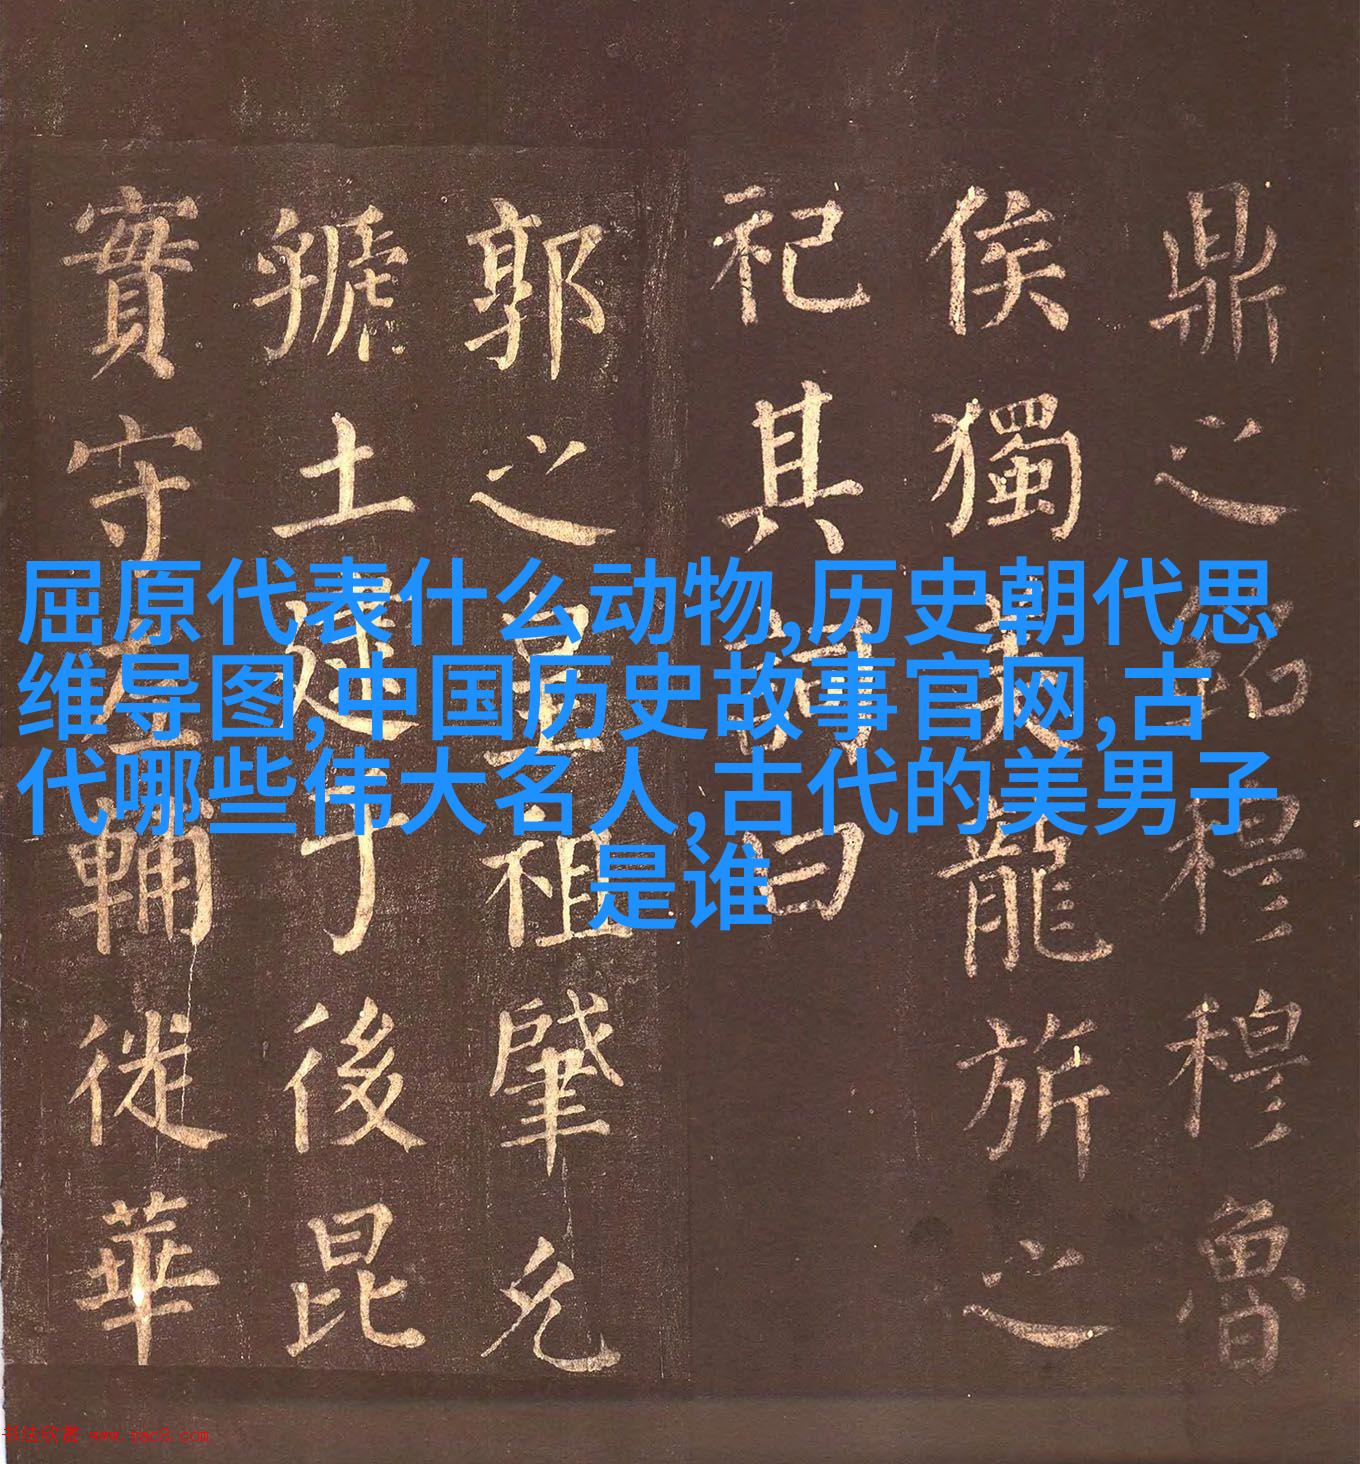 鼎之銘穆穆魯
侯獨美龍旂之
祀其詞曰
郭之皇祖肇允
虢土逮于後昆
實守左輔徙華
屈原代表什么动物,历史朝代思
维导图,中国历史故事官网,古
代哪些伟大名人,古代的美男子
是谁
书法欣赏 www.yac8.com